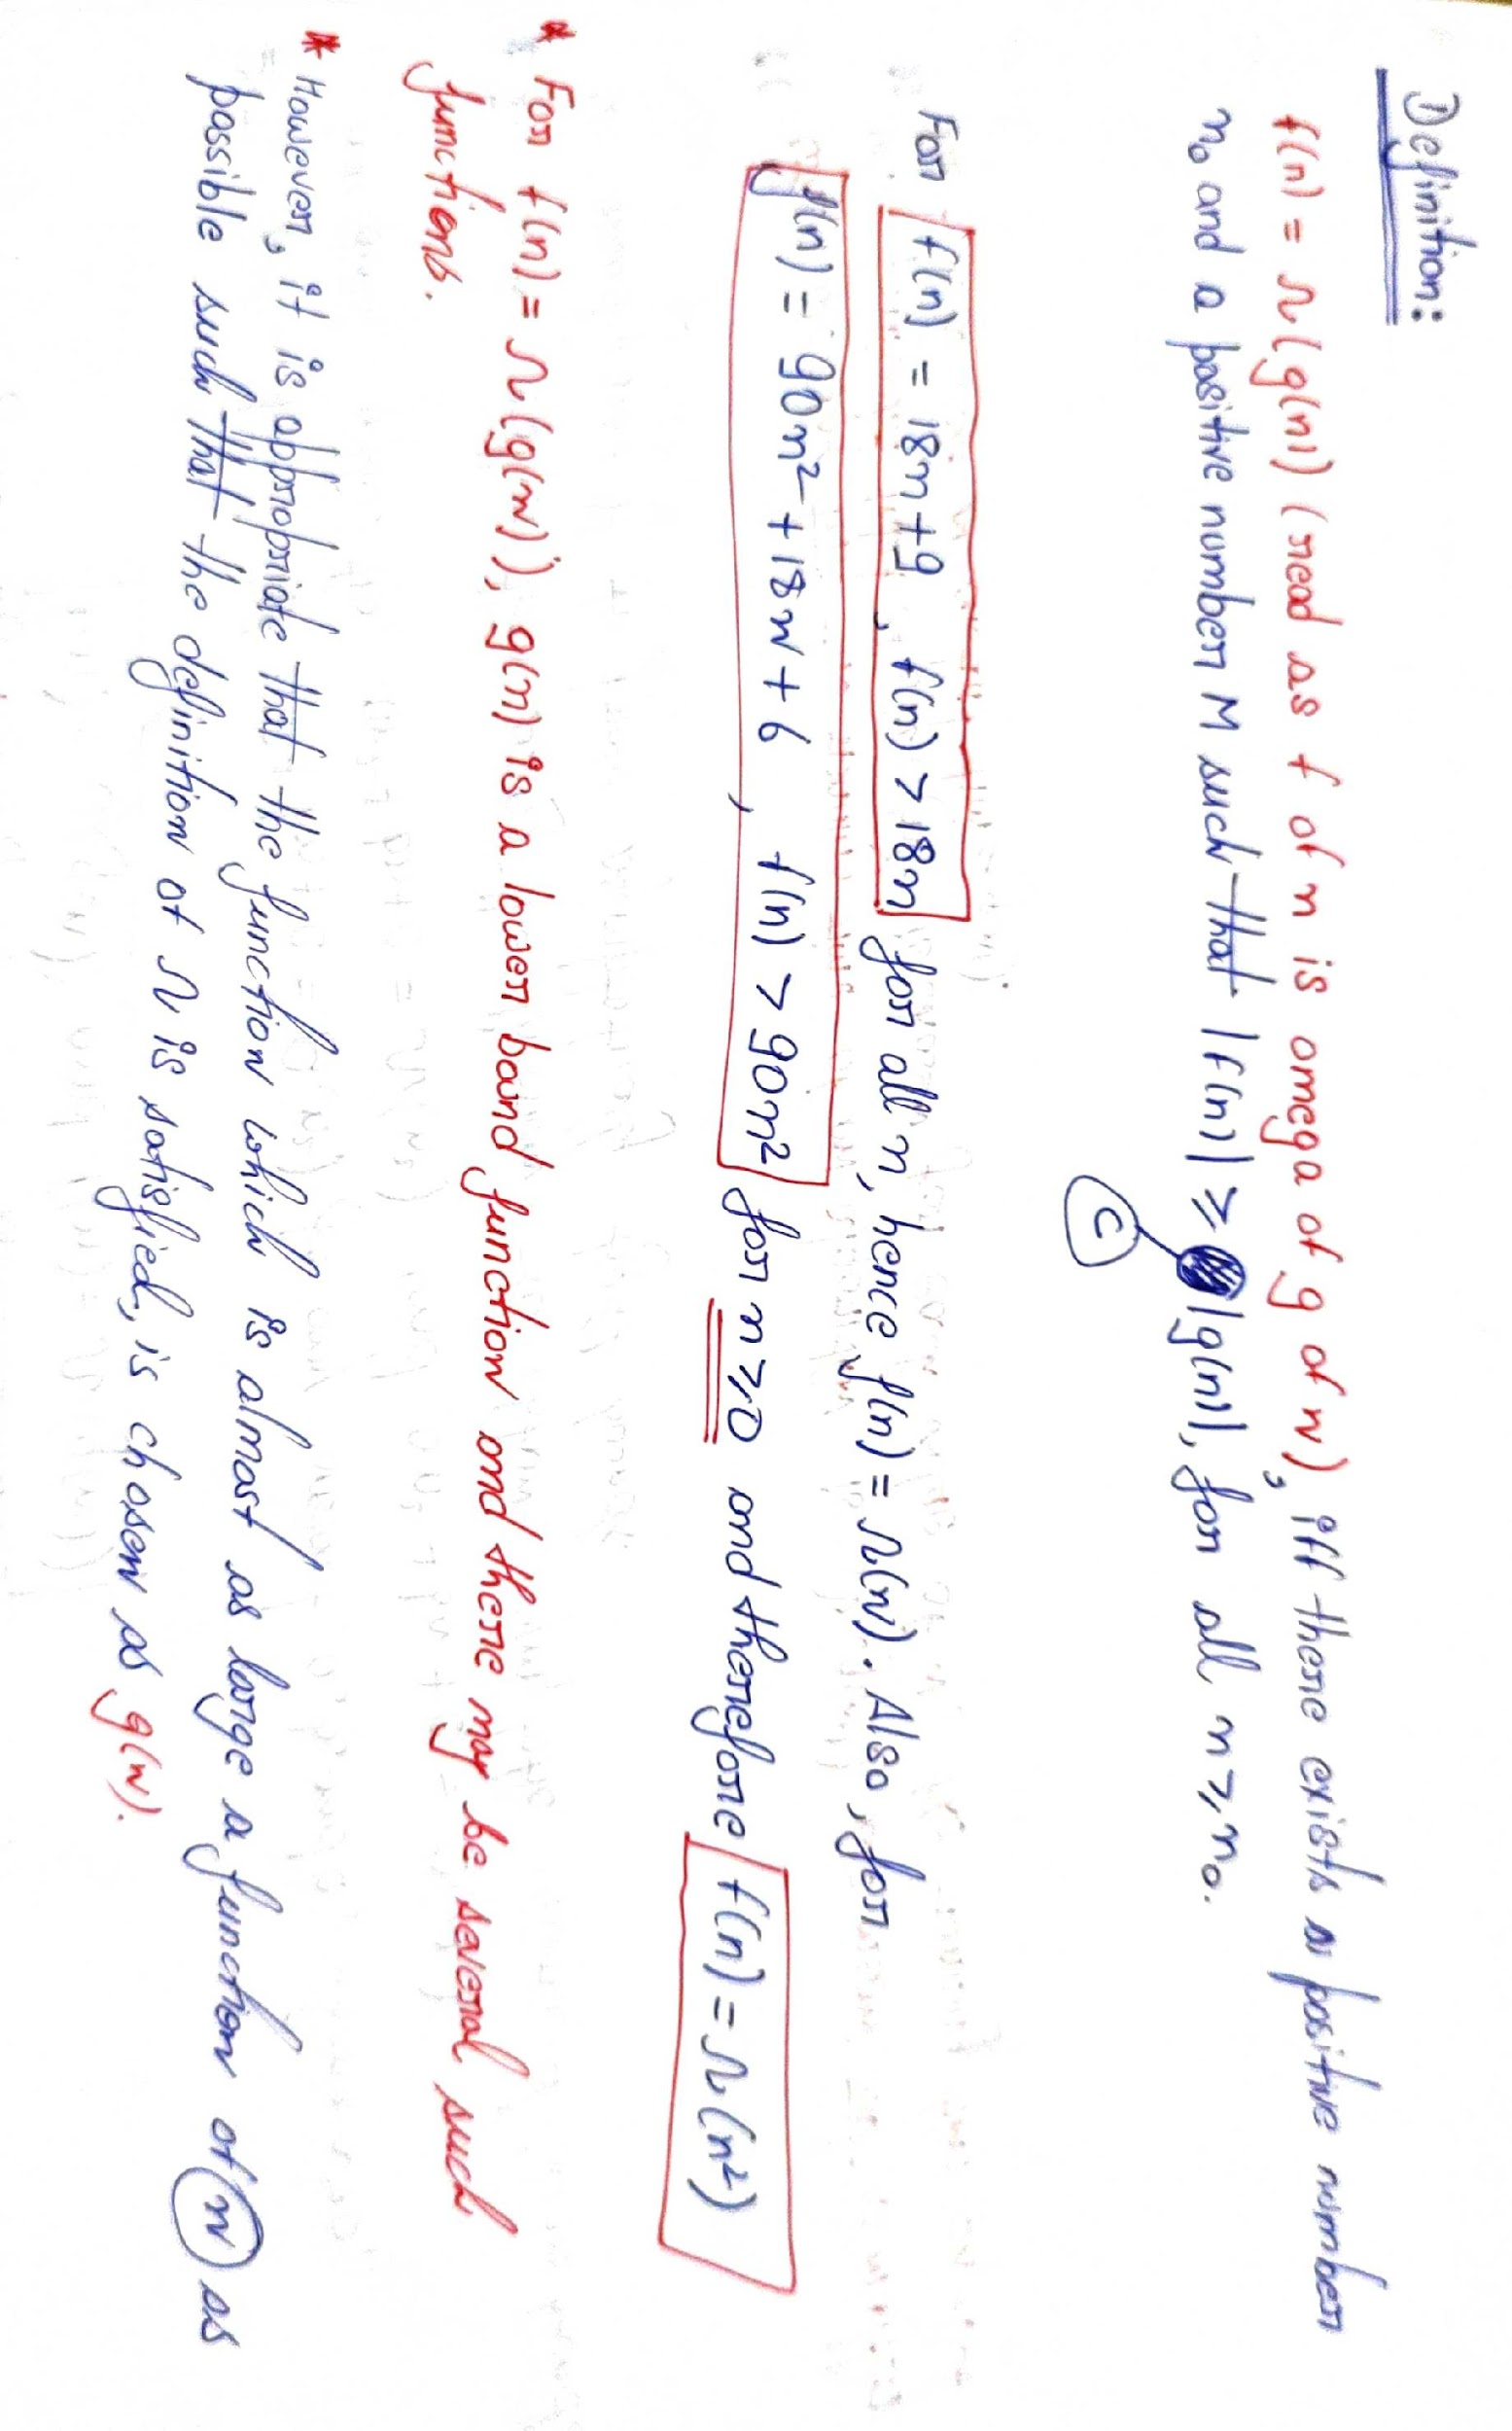 Definition:
f(n) = Ω(g(n)) (read as f of n is omega of g of n), iff there exists a positive number
n₀ and a positive number M such that |f(n)| ≥ |g(n)|, for all n ≥ n₀.
C
For f(n) = 18n+9, f(n) > 18n for all n, hence f(n) = Ω(n). Also, for
f(n) = 90n² + 18n + 6, f(n) > 90n² for n ≥ 0 and therefore f(n) = Ω(n²)
* For f(n) = Ω(g(n)), g(n) is a lower bound function and there may be several such
functions.
* However, it is appropriate that the function which is almost as large a function of n as
possible such that the definition of Ω is satisfied, is chosen as g(n).